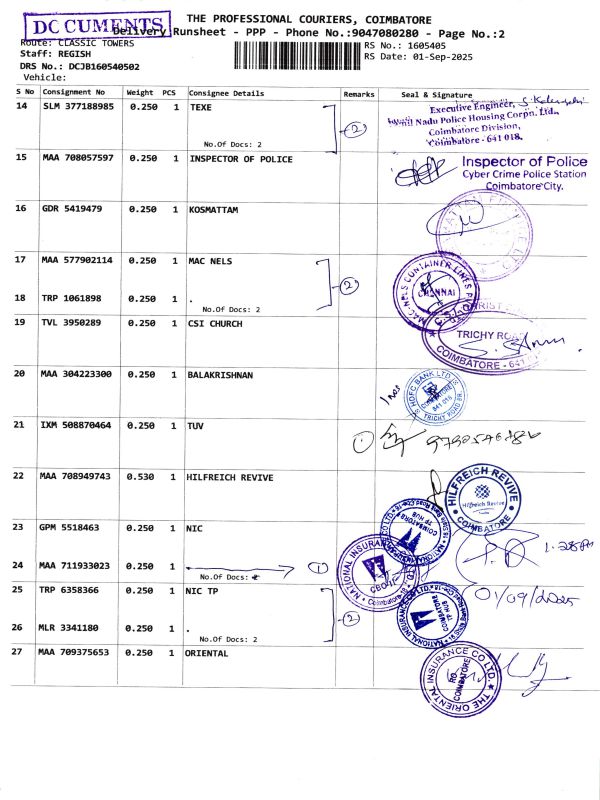 DOCUMENTS
THE PROFESSIONAL COURIERS, COIMBATORE
Delivery Runsheet - PPP - Phone No.:9047080280 - Page No.:2
Route: CLASSIC TOWERS
RS No.: 1605405
Staff: REGISH
RS Date: 01-Sep-2025
DRS No.: DCJB160540502
Vehicle:
S No Consignment No Weight PCS Consignee Details Remarks Seal & Signature
14 SLM 377188985 0.250 1 TEXE
No.Of Docs: 2
2
Executive Engineer,
Tamil Nadu Police Housing Corpn. Ltd.,
Coimbatore Division,
Coimbatore - 641 018.
15 MAA 708057597 0.250 1 INSPECTOR OF POLICE
Inspector of Police
Cyber Crime Police Station
Coimbatore City.
16 GDR 5419479 0.250 1 KOSMATTAM
17 MAA 577902114 0.250 1 MAC NELS
2
MACNELS CONTAINER LINES
CHENNAI
18 TRP 1061898 0.250 1 .
No.Of Docs: 2
19 TVL 3950289 0.250 1 CSI CHURCH
CHRIST
TRICHY ROAD
COIMBATORE - 641
20 MAA 304223300 0.250 1 BALAKRISHNAN
HDFC BANK LTD
COIMBATORE
641 018
TRICHY ROAD BR.
21 IXM 508870464 0.250 1 TUV
1
22 MAA 708949743 0.530 1 HILFREICH REVIVE
HILFREICH REVIVE
Hilfreich Revive
COIMBATORE
23 GPM 5518463 0.250 1 NIC
COIMBATORE
TP HUB
24 MAA 711933023 0.250 1
No.Of Docs:
1
NATIONAL INSURANCE
CBO
Coimbatore-18
01/09/2025
25 TRP 6358366 0.250 1 NIC TP
2
NATIONAL INSURANCE CO. LTD.
COIMBATORE
TP HUB
26 MLR 3341180 0.250 1 .
No.Of Docs: 2
27 MAA 709375653 0.250 1 ORIENTAL
THE ORIENTAL INSURANCE CO LTD.
RO
COIMBATORE